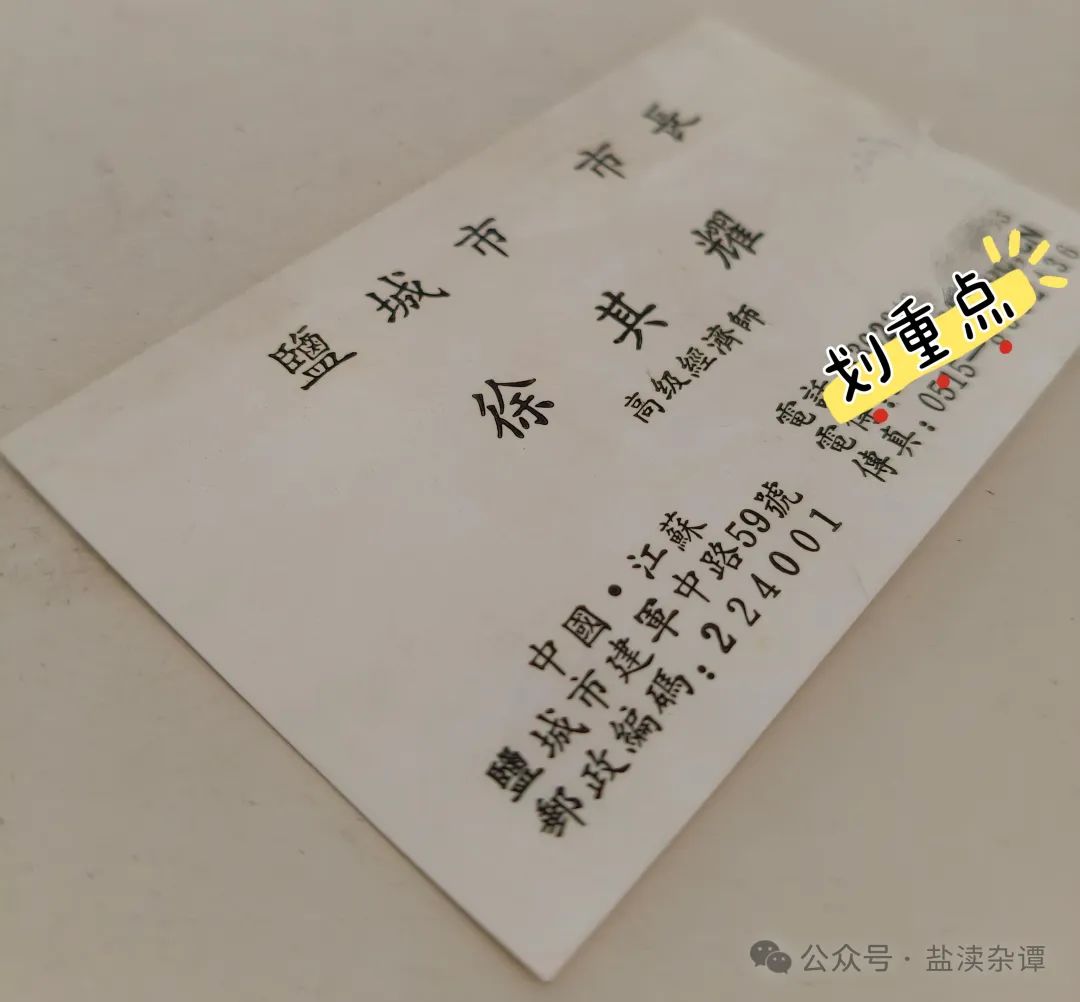 鹽城市 市長
徐其耀
高級經濟師
中國·江蘇
鹽城市建軍中路59號
郵政編碼：224001
電
電
傳真：0515—
划重点
公众号·盐渎杂谭